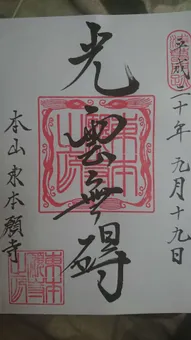 平成十年九月十九日
光雲無碍
本山東本願寺